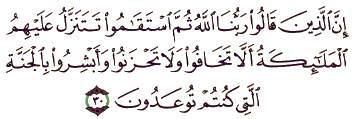 إِنَّ ٱلَّذِينَ قَالُوا۟ رَبُّنَا ٱللَّهُ ثُمَّ ٱسْتَقَٰمُوا۟ تَتَنَزَّلُ عَلَيْهِمُ
ٱلْمَلَٰٓئِكَةُ أَلَّا تَخَافُوا۟ وَلَا تَحْزَنُوا۟ وَأَبْشِرُوا۟ بِٱلْجَنَّةِ
ٱلَّتِى كُنتُمْ تُوعَدُونَ ٣٠